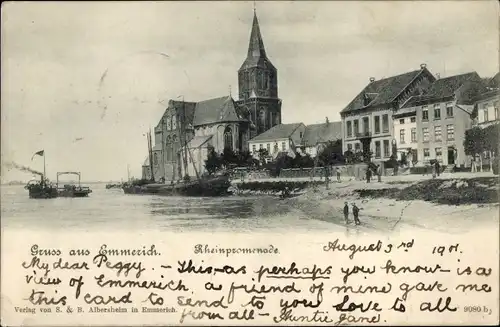 Gruss aus Emmerich.
Rheinpromenade.
August 3rd 1901.
My dear Peggy. - This as perhaps you know is a
view of Emmerich, a friend of mine gave me
this card to send to you. Love to all
from all - Auntie Jane.
Verlag von S. & B. Albersheim in Emmerich.
9080 b,